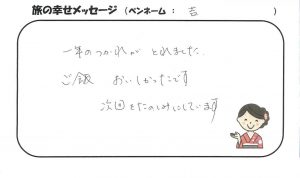 旅の幸せメッセージ (ペンネーム : 吉 )
一年のつかれが とれました。
ご飯 おいしかったです
次回をたのしみにしています